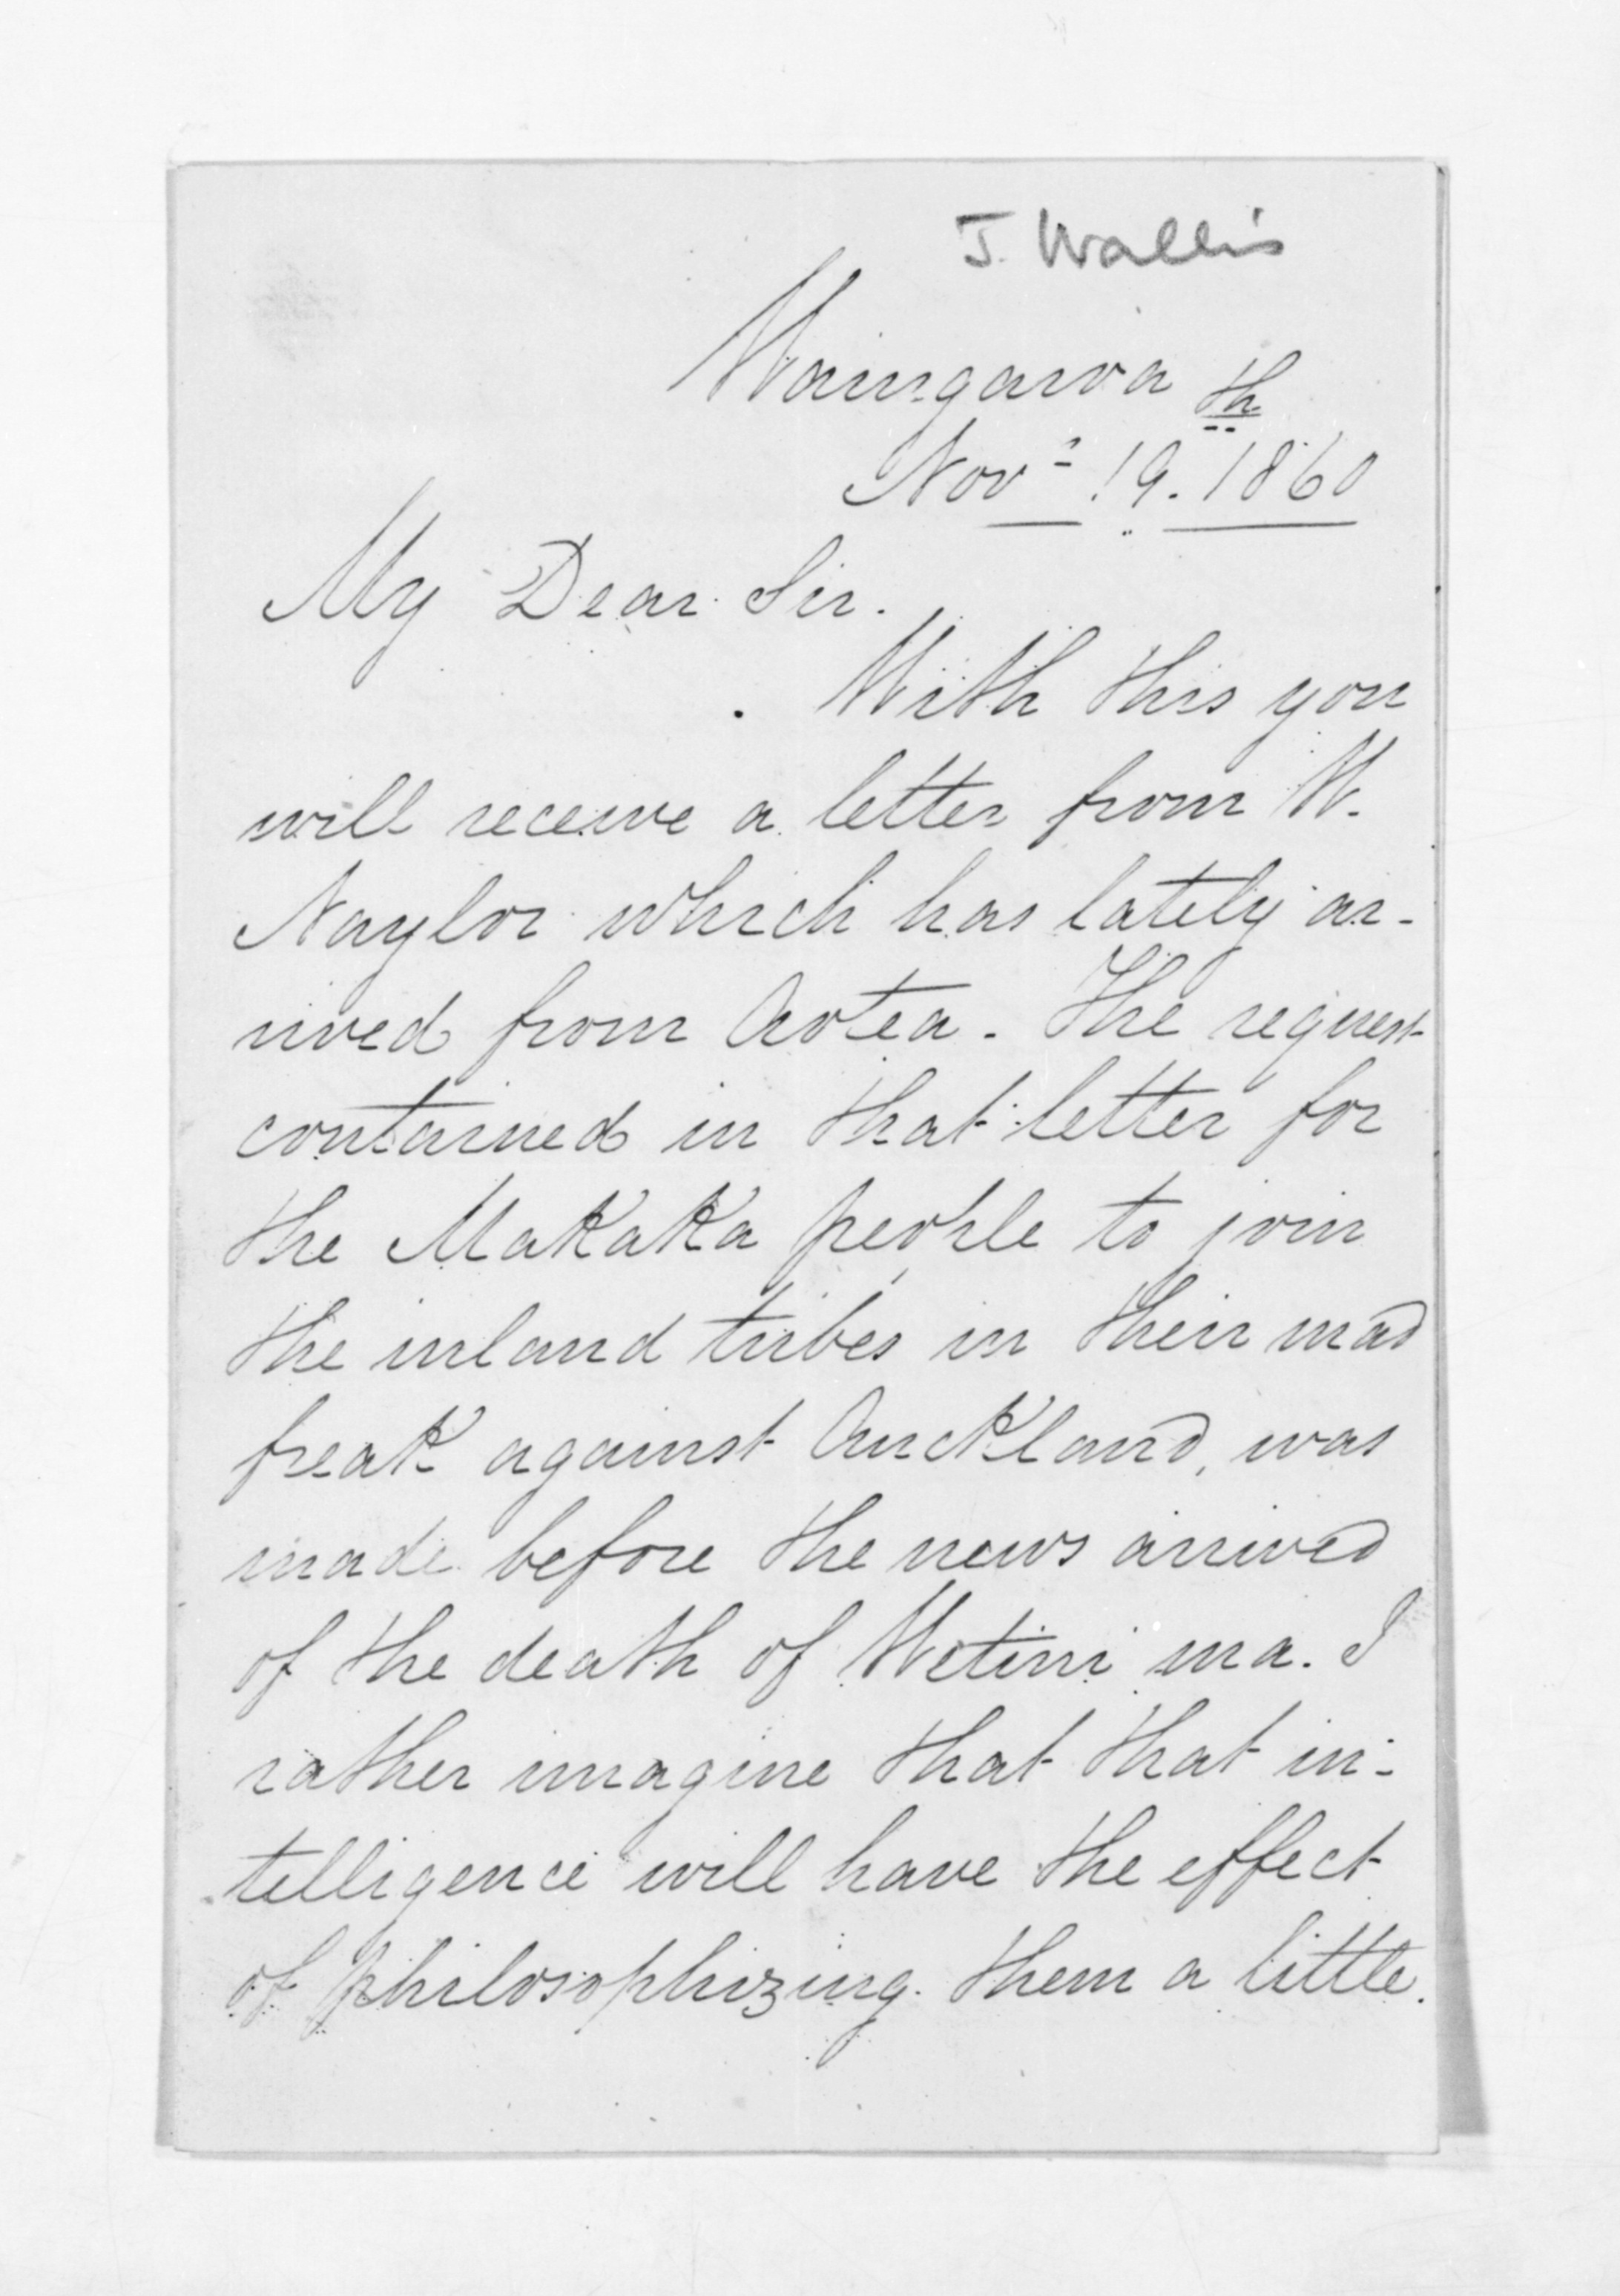 J. Wallis
Waingaroa
Novr 19th 1860
My Dear Sir.
With this you
will receive a letter from W.
Naylor which has lately ar-
rived from Aotea. The request
contained in that letter for
the Makaka people to join
the inland tribes in their mad
freak against Auckland, was
made before the news arrived
of the death of Wetini ma. I
rather imagine that that in-
telligence will have the effect
of philosophizing them a little.